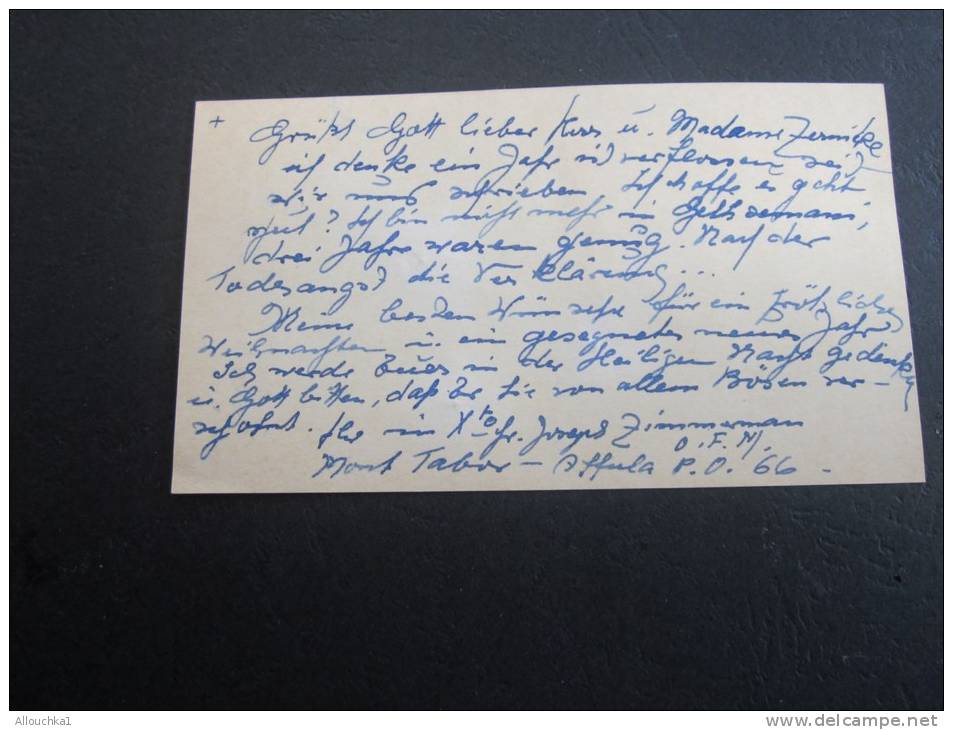 +
Grüßt Gott lieber Herr u. Madame Zernicke
ich denke ein Jahr ist verflossen seit
wir uns schrieben. Ich hoffe es geht
gut? Ich bin nicht mehr in Gethsemani,
drei Jahre waren genug. Nach der
Todesangst die Verklärung...
Meine besten Wünsche für ein fröhliches
Weihnachten u. ein gesegnetes neues Jahr
Ich werde Euer in der Heiligen Nacht gedenken
u. Gott bitten, daß Er Sie von allem Bösen ver-
schont. Ihr in Xto fr. Joseph Zimmerman
O.F.M.
Mont Tabor - Affula P.O. 66 -
Allouchka1
www.delcampe.net